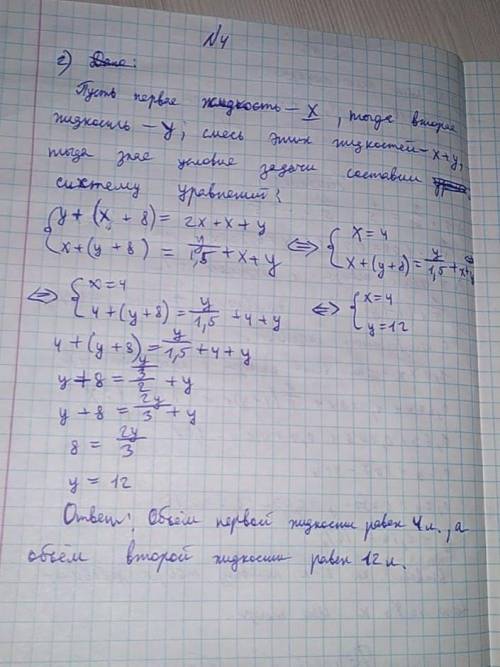 №4
г) Дано:
Пусть первая жидкость – x, тогда вторая
жидкость – y; смесь этих жидкостей – x+y,
тогда зная условие задачи составим
систему уравнений:
{ y + (x + 8) = 2x + x + y
{ x + (y + 8) = y/1,5 + x + y ⇔ { x = 4
{ x + (y + 8) = y/1,5 + x + y ⇔
⇔ { x = 4
{ 4 + (y + 8) = y/1,5 + 4 + y ⇔ { x = 4
{ y = 12
4 + (y + 8) = y/1,5 + 4 + y
y + 8 = y/(3/2) + y
y + 8 = 2y/3 + y
8 = 2y/3
y = 12
Ответ: Объём первой жидкости равен 4 л., а
объём второй жидкости равен 12 л.